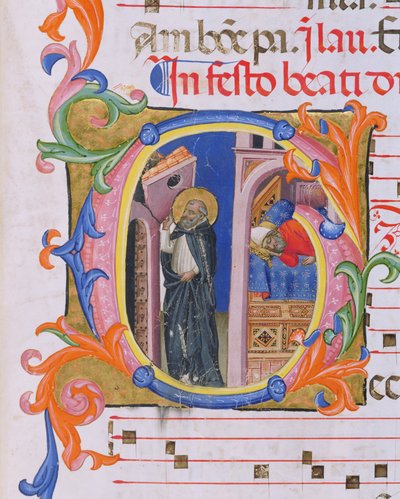 Am bōe pa. Jlau. E
In festo beati do
ecc